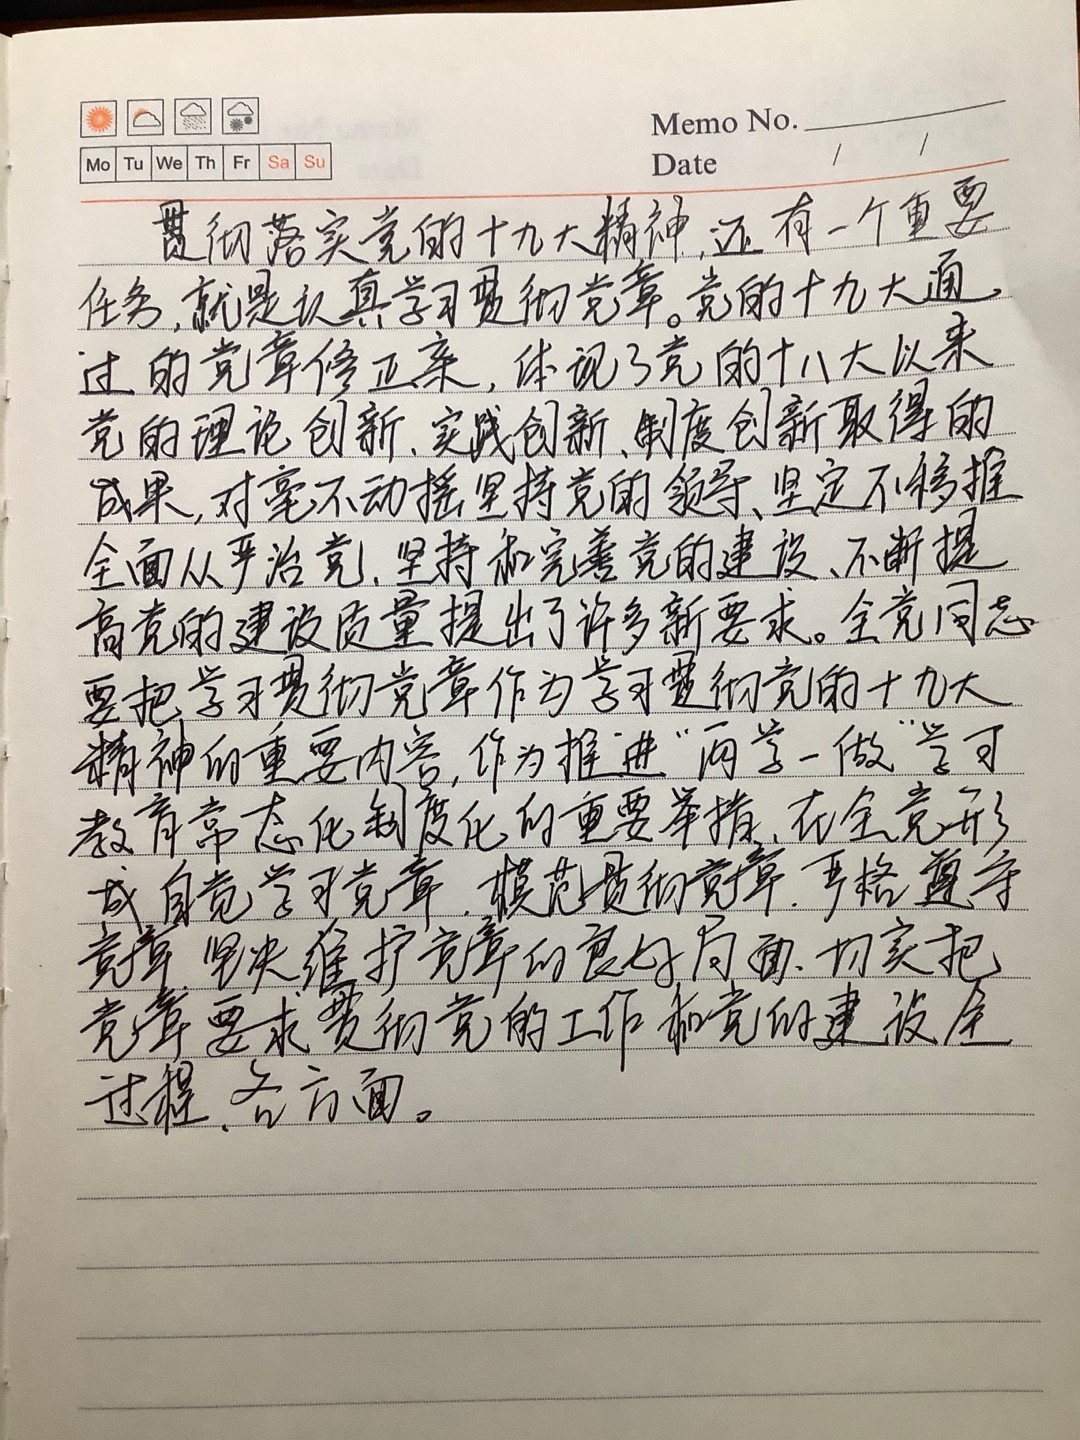 Memo No.
Mo Tu We Th Fr Sa Su
Date / /
贯彻落实党的十九大精神,还有一个重要
任务,就是认真学习贯彻党章。党的十九大通
过的党章修正案,体现了党的十八大以来
党的理论创新、实践创新、制度创新取得的
成果,对毫不动摇坚持党的领导、坚定不移推
全面从严治党、坚持和完善党的建设、不断提
高党的建设质量提出了许多新要求。全党同志
要把学习贯彻党章作为学习贯彻党的十九大
精神的重要内容,作为推进“两学一做”学习
教育常态化制度化的重要举措、在全党形
成自觉学习党章、模范贯彻党章、严格遵守
党章、坚决维护党章的良好局面、切实把
党章要求贯彻党的工作和党的建设全
过程、各方面。